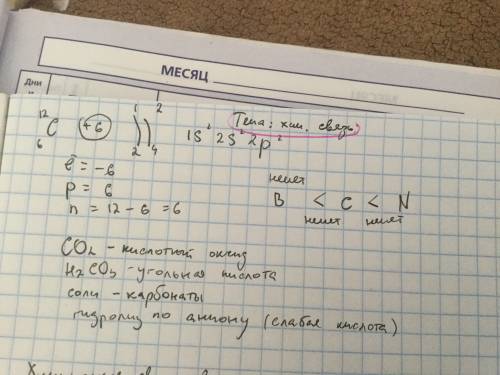 МЕСЯЦ
Дни
1 2
Тема: хим. связь
12 6 C +6 )) 2 4 1S² 2S² 2p²
ē = -6
p = 6
n = 12 - 6 = 6
немет
B < C < N
немет немет
CO₂ - кислотный оксид
H₂CO₃ - угольная кислота
соли - карбонаты
гидролиз по аниону (слабая кислота)